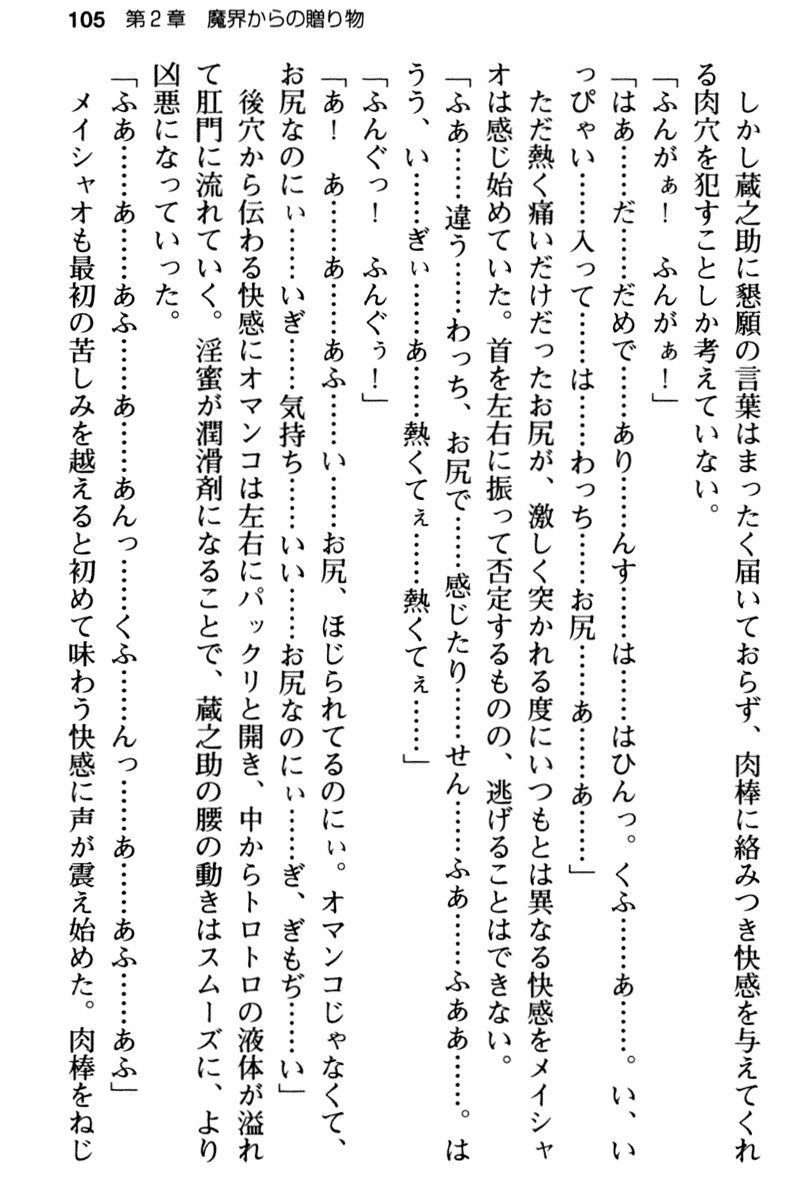 105　第２章　魔界からの贈り物
しかし蔵之助に懇願の言葉はまったく届いておらず、肉棒に絡みつき快感を与えてくれ
る肉穴を犯すことしか考えていない。
「ふんがぁ！　ふんがぁ！」
「はあ……だ……だめで……あり……んす……は……はひんっ。くふ……あ……。い、い
っぴゃい……入って……は……わっち……お尻……あ……あ……」
ただ熱く痛いだけだったお尻が、激しく突かれる度にいつもとは異なる快感をメイシャ
オは感じ始めていた。首を左右に振って否定するものの、逃げることはできない。
「ふぁ……違う……わっち、お尻で……感じたり……せん……ふあ……ふああ……。は
うう、い……ぎぃ……あ……熱くてぇ……熱くてぇ……」
「ふんぐっ！　ふんぐぅ！」
「あ！　あ……あ……あふ……い……お尻、ほじられてるのにぃ。オマンコじゃなくて、
お尻なのにぃ……いぎ……気持ち……いい……お尻なのにぃ……ぎ、ぎもぢ……い」
後穴から伝わる快感にオマンコは左右にパックリと開き、中からトロトロの液体が溢れ
て肛門に流れていく。淫蜜が潤滑剤になることで、蔵之助の腰の動きはスムーズに、より
凶悪になっていった。
「ふあ……あ……あふ……あ……あんっ……くふ……んっ……あ……あふ……あふ」
メイシャオも最初の苦しみを越えると初めて味わう快感に声が震え始めた。肉棒をねじ